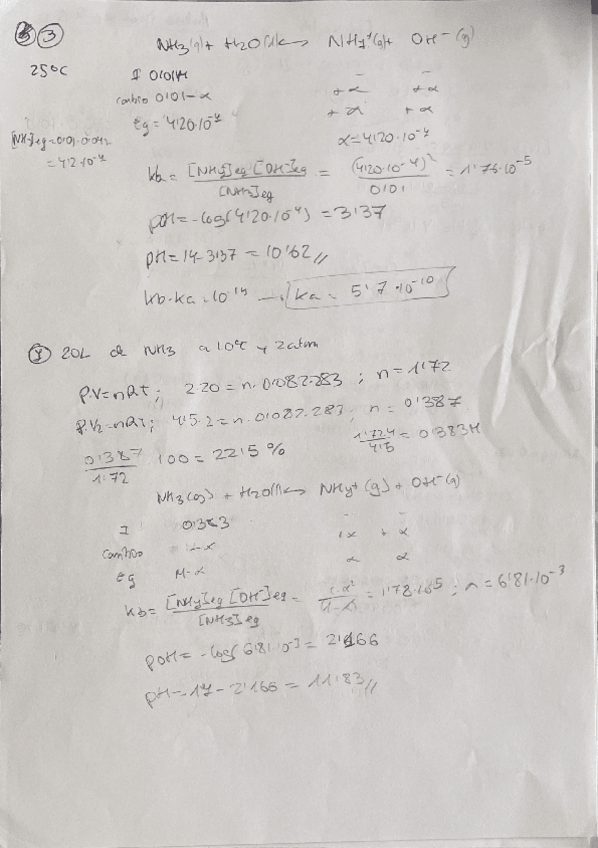 ③
NH3(g) + H2O(l) ⇌ NH4+(g) + OH-(g)
25ºC
I 0'01M - -
cambio 0'01-x +x +x
+x +x
eq = 4'20·10-4 x=4'20·10-4
[NH4]eq=0'01·0'042
= 4'2·10-4
kb = [NH4]eq·[OH-]eq / [NH3]eq = (4'20·10-4)2 / 0'01 = 1'76·10-5
pOH= -log(4'20·10-4) = 3'37
pH= 14-3'37 = 10'62 //
kb·ka=10-14 → ka = 5'7·10-10
④ 20L de NH3 a 10ºC y 2atm
P.V=nRT; 2·20=n·0'082·283 ; n=1'72
P.V=nRT; 4'5·2=n·0'082·283; n=0'387
0'387 / 1'72 100 = 22'5 % 1'724 / 4'5 = 0'383M
NH3(g) + H2O(l) ⇌ NH4+(g) + OH-(g)
I 0'383 - -
cambio -x +x +x
eq M-x x x
kb= [NH4]eq [OH-]eq / [NH3]eq = = 1'78·10-5 ; = 6'81·10-3
pOH= -log(6'81·10-3) = 2'166
pH= 14-2'166 = 11'83 //